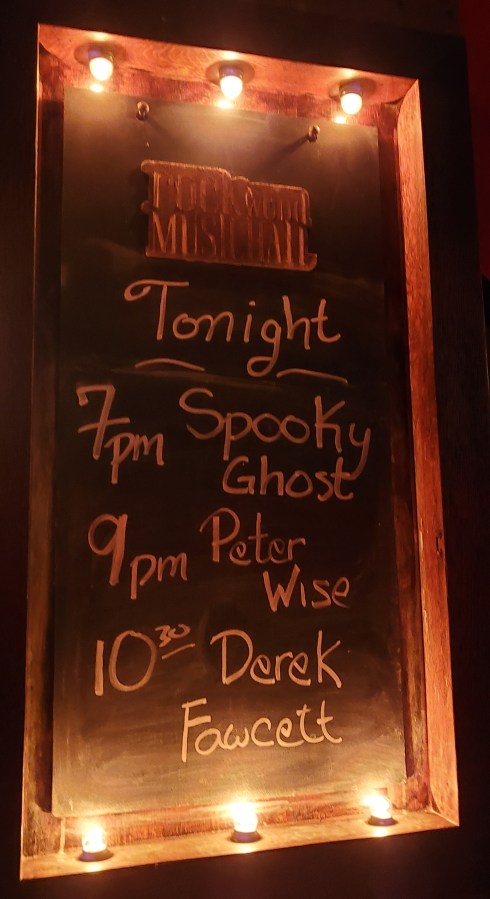 ROCKWOOD
MUSIC HALL
Tonight
7pm Spooky
Ghost
9pm Peter
Wise
10 30 Derek
Fawcett